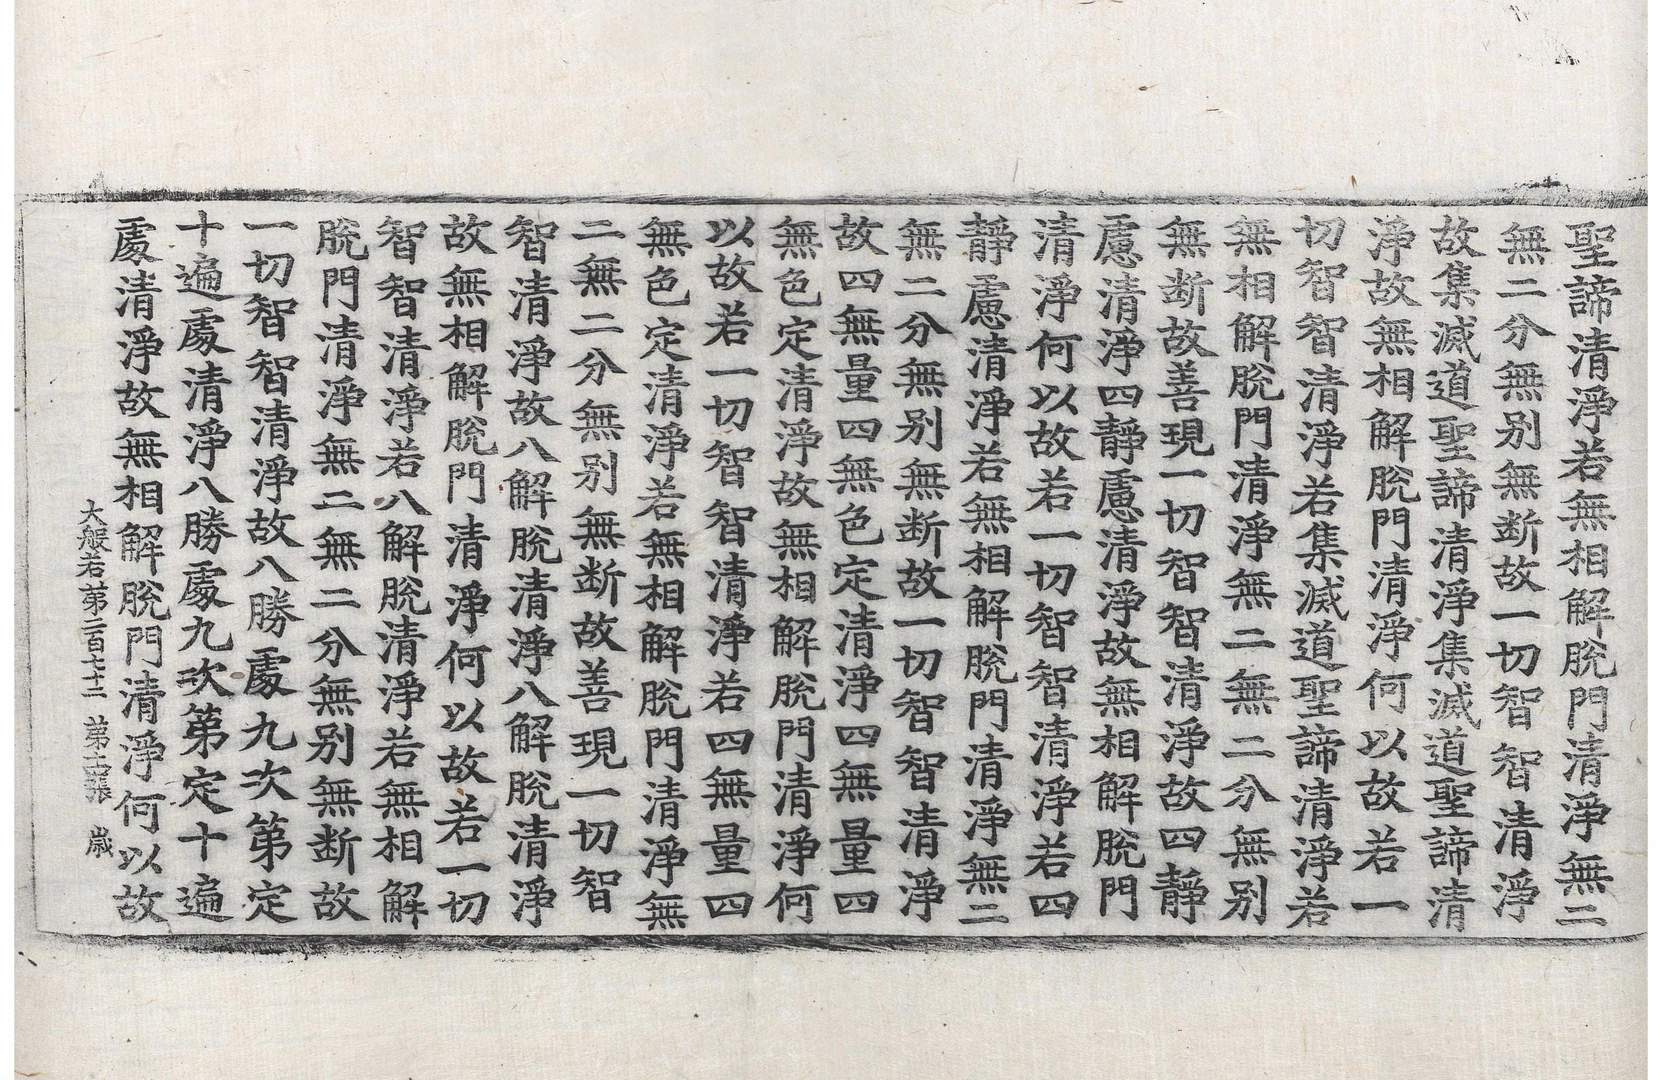 聖諦清淨若無相解脫門清淨無二
無二分無别無断故一切智智清淨
故集滅道聖諦清淨集滅道聖諦清
淨故無相解脫門清淨何以故若一
切智智清淨若集滅道聖諦清淨若
無相解脫門清淨無二無二分無别
無断故善現一切智智清淨故四靜
慮清淨四靜慮清淨故無相解脫門
清淨何以故若一切智智清淨若四
靜慮清淨若無相解脫門清淨無二
無二分無别無断故一切智智清淨
故四無量四無色定清淨四無量四
無色定清淨故無相解脫門清淨何
以故若一切智智清淨若四無量四
無色定清淨若無相解脫門清淨無
二無二分無别無断故善現一切智
智清淨故八解脫清淨八解脫清淨
故無相解脫門清淨何以故若一切
智智清淨若八解脫清淨若無相解
脫門清淨無二無二分無别無断故
一切智智清淨故八勝處九次第定
十遍處清淨八勝處九次第定十遍
處清淨故無相解脫門清淨何以故
大般若第二百七十二 第張 歲